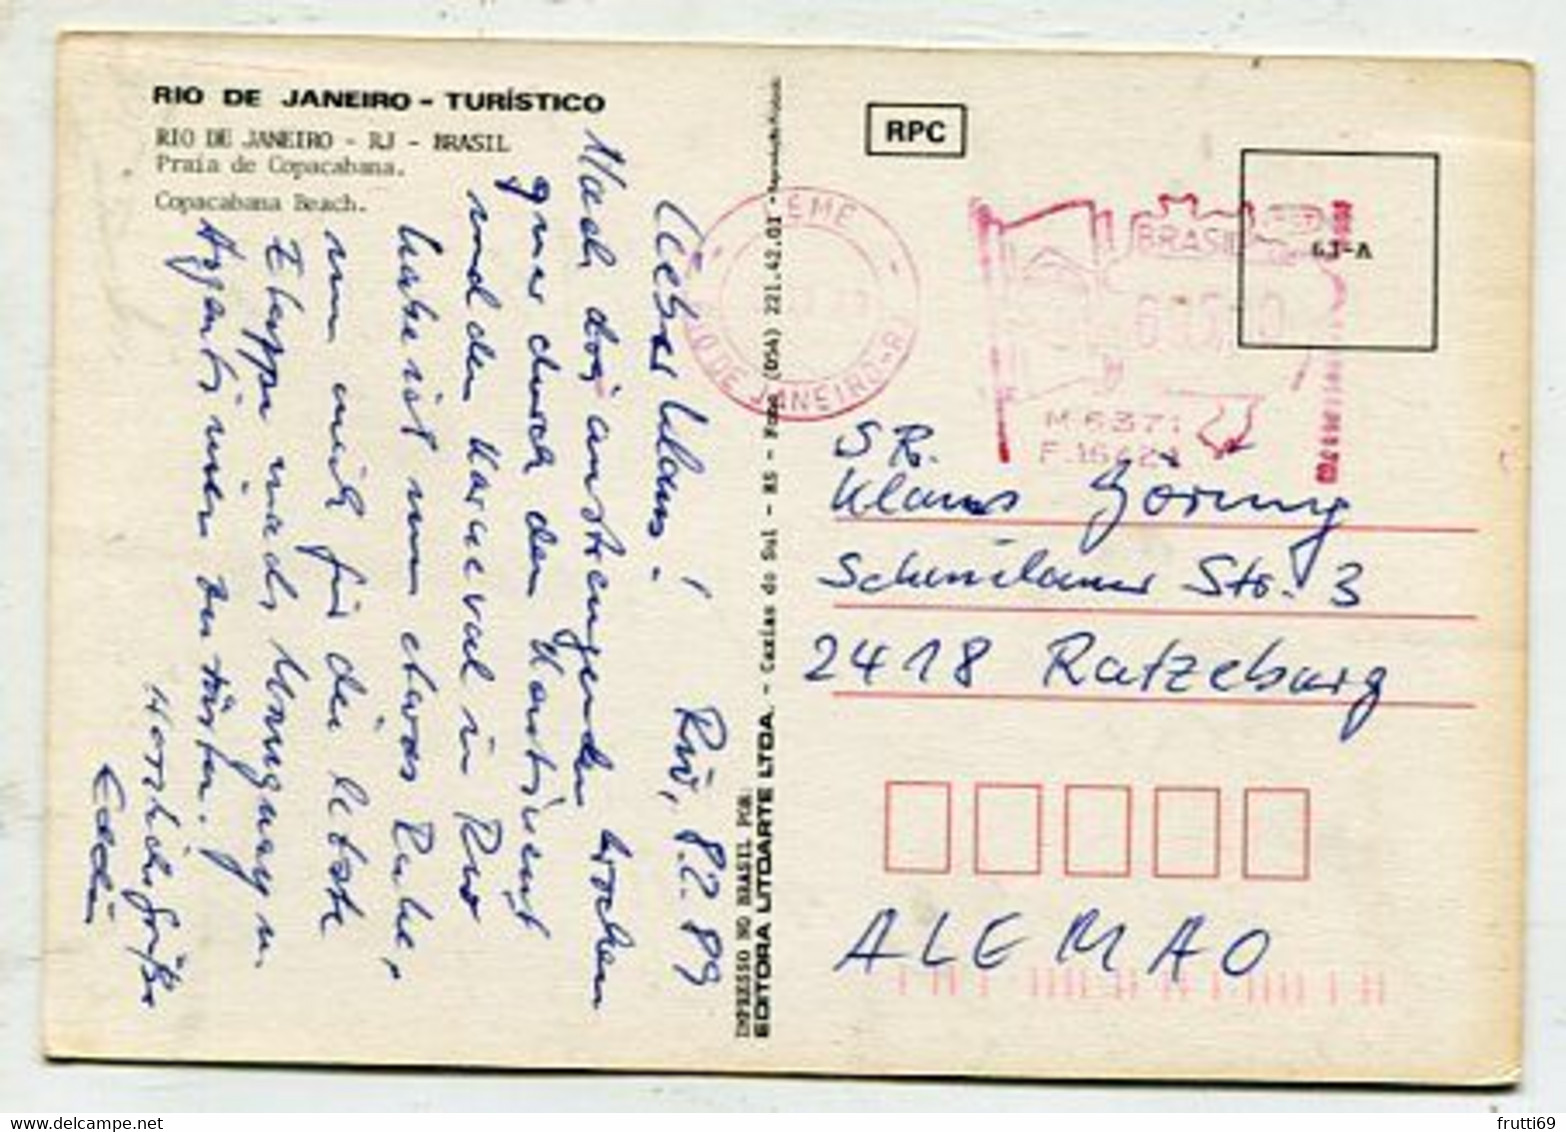 RIO DE JANEIRO - TURÍSTICO
RIO DE JANEIRO - RJ - BRASIL
Praia de Copacabana.
Copacabana Beach.
Rio, 8.2.89
Lieber Klaus!
Nach drei anstrengenden Wochen
quer durch den Kontinent
und den Karneval in Rio
habe ist nun etwas Ruhe,
um mich für die letzte
Etappe nach Uruguay u.
Argentinien zu rüsten.
Herzliche Grüße
Eddi
IMPRESSO NO BRASIL POR:
EDITORA LITOARTE LTDA. - Caxias do Sul - RS - Fone (054) 221.42.01
RPC
LEME
RIO DE JANEIRO-RJ
BRASIL
M-6371
F.16424
63-A
SR.
Klaus Göring
Str. 3
2418 Ratzeburg
ALEMAO
frutti69